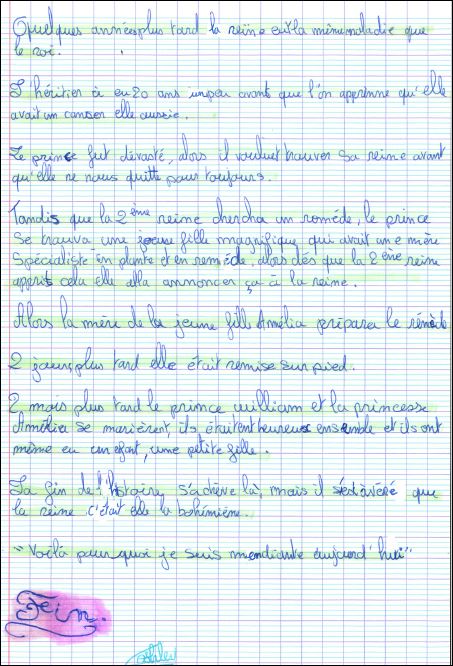 Quelques années plus tard la reine eut la même maladie que
le roi.
L'héritier à eu 20 ans un peu avant que l'on apprenne qu'elle
avait un cancer elle aussie.
Le prince fut dévasté, alors il voulut trouver sa reine avant
qu'elle ne nous quitte pour toujours.
Tandis que la 2ème reine chercha un romède, le prince
se trouva une jeune fille magnifique qui avait une mère
spécialiste en plante et en remède, alors dès que la 2ème reine
apprit cela elle alla annoncer ça à la reine.
Alors la mère de la jeune fille Amélia prépara le rémède
2 jours plus tard elle était remise sur pied.
2 mois plus tard le prince william et la princesse
Amélia se marièrent, ils étaitent heureux ensemble et ils ont
même eu un enfant, une petite fille.
La fin de l'histoire s'achève là, mais il s'est avéré que
la reine c'était elle la bohémiène.
"Voilà pourquoi je suis mendiante aujourd'hui"
Fein.